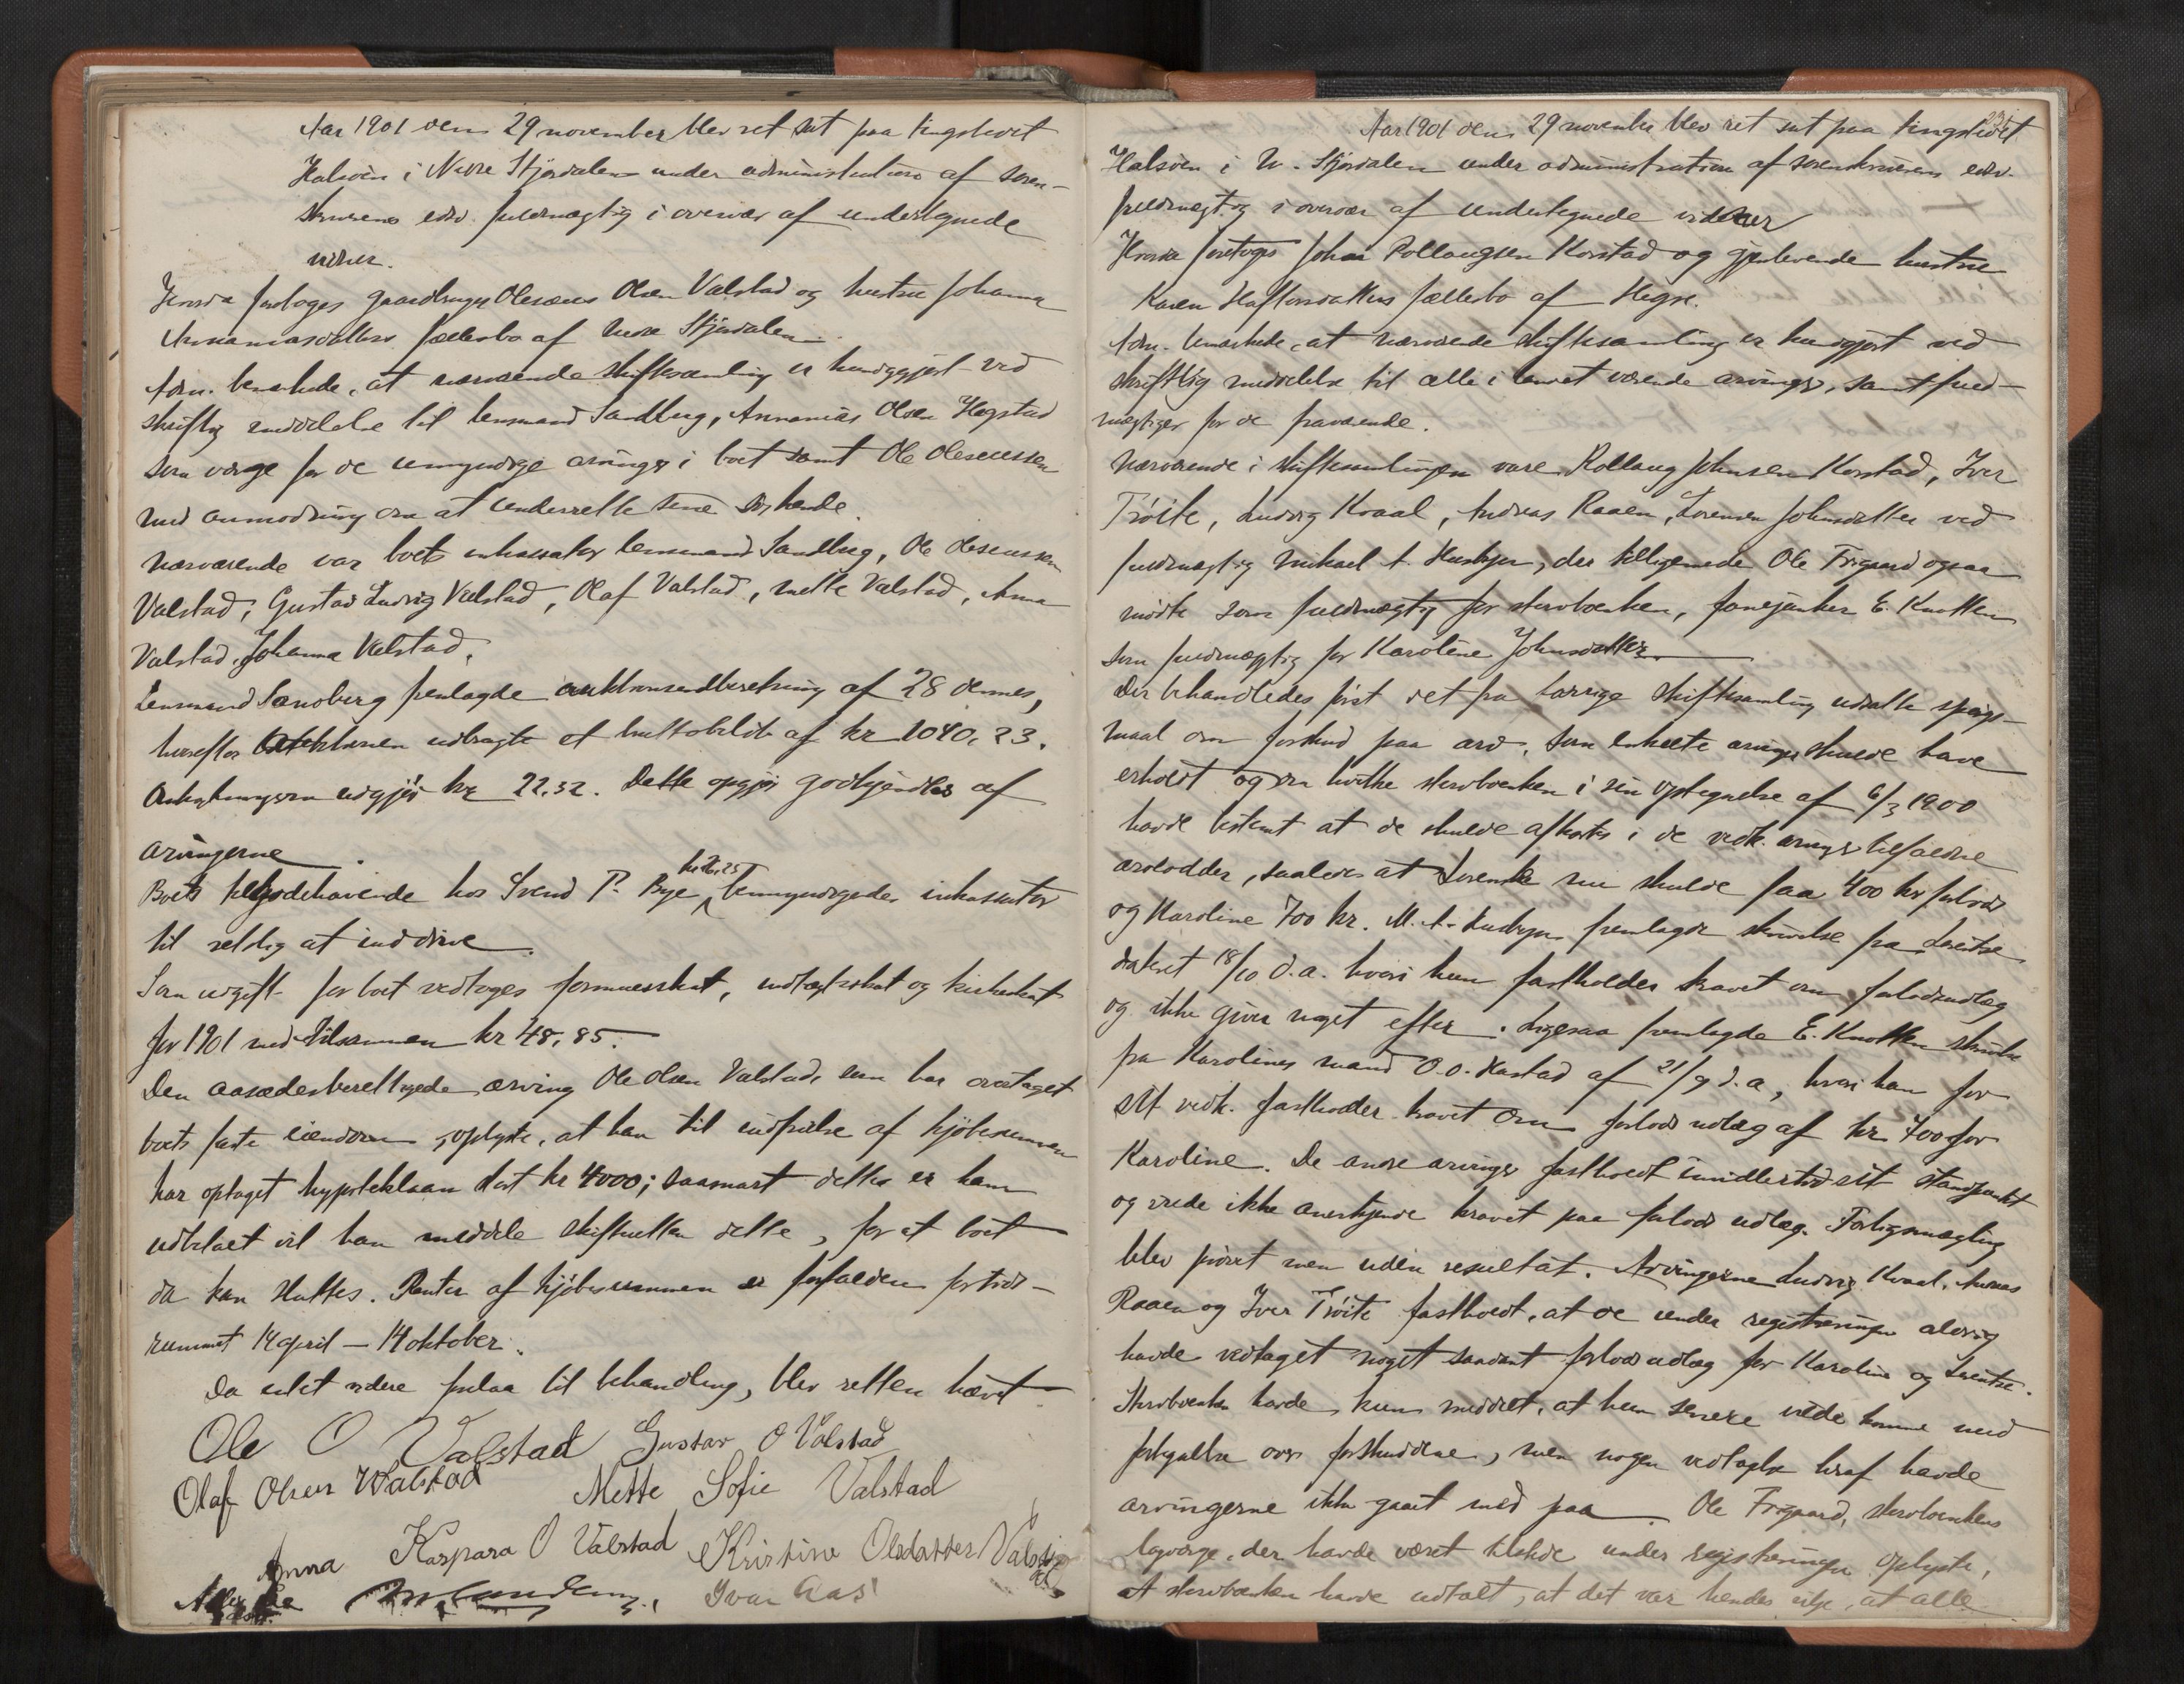 Aar 1901 den 29 november blev ret sat paa tingstedet
Halsøen i Nedre Stjørdalen under administration af soren-
skriverens edsv. fuldmægtig i overvær af undertegnede
vidner.
Hvorda foretoges gaardbruger Olesæus Olsen Valstad og hustru Johanna
Annaniasdatters fællesbo af Nedre Stjørdalen.
Adm. bemerkede, at nærværende skiftesamling er kundgjort ved
skriftlig meddelelse til lensmand Sandberg, Annanias Olsen Hegstad
som værge for de umyndige arvinger i boet samt Ole Oleseussen
med anmodning om at underrette sine søskende.
Nærværende var boets inkassator lensmand Sandberg, Ole Oleseussen
Valstad, Gustav Ludvig Valstad, Olaf Valstad, Mette Valstad, Anna
Valstad, Johanna Valstad.
Lensmand Sandberg fremlagde auktionsindberetning af 28 dennes,
hvorefter Auktionen udbragte et bruttobeløb af kr 1040,23.
Omkostningerne udgjør kr 22,32. Dette opgjør godkjendtes af
arvingerne.
Boets tilgodehavende hos Svend P. Bye bemyndigedes inkassator
til retslig at inddrive.
Som udgift for boet vedtoges formuesskat, indtægtsskat og kirkeskat
for 1901 med tilsammen kr 48,85.
Den aasædesberettigede arving Ole Olsen Valstad, som har overtaget
boets faste eiendom, oplyste, at han til indfrielse af kjøbesummen
har optaget hypoteklaan stort kr 4000; saasnart dette er ham
udbetalt vil han meddele skifteretten dette, for at boet
da kan sluttes. Renter af kjøbesummen er forfalden for tids-
rummet 14 april – 14 oktober.
Da intet videre forelaa til behandling, blev retten hævet
Ole O Valstad Gustav O Valstad
Olaf Olsen Walstad Mette Sofie Valstad
Anna Kaspara O Valstad Kristine Olsdatter Valstad
Ivar Aas
Aar 1901 den 29 november blev ret sat paa tingstedet
Halsøen i N. Stjørdalen under administration af sorenskriverens edsv.
fuldmægtig i overvær af undertegnede vidner
Hvorda foretoges Johan Rollaugsen Korstad og gjenlevende hustru
Karen Haftorsdatters fællesbo af Hegre.
Adm. bemærkede, at nærværende skiftesamling er kundgjort ved
skriftlig meddelelse til alle i landet værende arvinger, samt fuld-
mægtiger for de fraværende.
Nærværende i skiftesamlingen vare Rollaug Johnsen Korstad, Iver
Trøite, Ludvig Kvaal, Andreas Raaen, Lorense Johnsdatter ved
fuldmægtig Mikael A. Husbyn, der tilligemed Ole Frigaard ogsaa
mødte som fuldmægtig for stervboenken, fanejunker E. Knotten
som fuldmægtig for Karoline Johnsdatter.
Der behandledes først det fra forrige skiftesamling udsatte spørgs-
maal om forskud paa arv, som enkelte arvinger skulde have
erholdt og om hvilke stervboenken i sin optegnelse af 6/3 1900
havde bestemt at de skulde afkortes i de vedk. arvinger tilfaldne
arvelodder, saaledes at Lorentse nu skulde faa 400 kr forlods
og Karoline 700 kr. M. A. Husbyn fremlagde skrivelse fra Lorentse
dateret 18/10 d.a. hvori hun fastholder kravet om forlodsudlæg
og ikke giver noget efter. Ligesaa fremlagde E. Knotten skrivelse
fra Karolines mand O. O. Kastad af 21/9 d.a., hvori han for
sit vedk. fastholder kravet om forlods udlæg af kr 700 for
Karoline. De andre arvinger fastholdt imidlertid sit standpunkt
og vilde ikke anerkjende kravet paa forlods udlæg. Forligsmægling
blev prøvet men uden resultat. Arvingerne Ludvig Kvaal, Andreas
Raaen og Iver Trøite fastholdt, at de under registreringen aldrig
havde vedtaget noget saadant forlods udlæg for Karoline og Lorentse.
Stervboenken havde kun meddelt, at hun senere vilde komme med
fortegnelse over forskuddene, men nogen vedtagelse heraf havde
arvingerne ikke gaaet med paa. Ole Frigaard, stervboenkens
lagværge, der havde været tilstede under registreringen oplyste,
at stervboenken havde udtalt, at det var hendes vilje, at alle